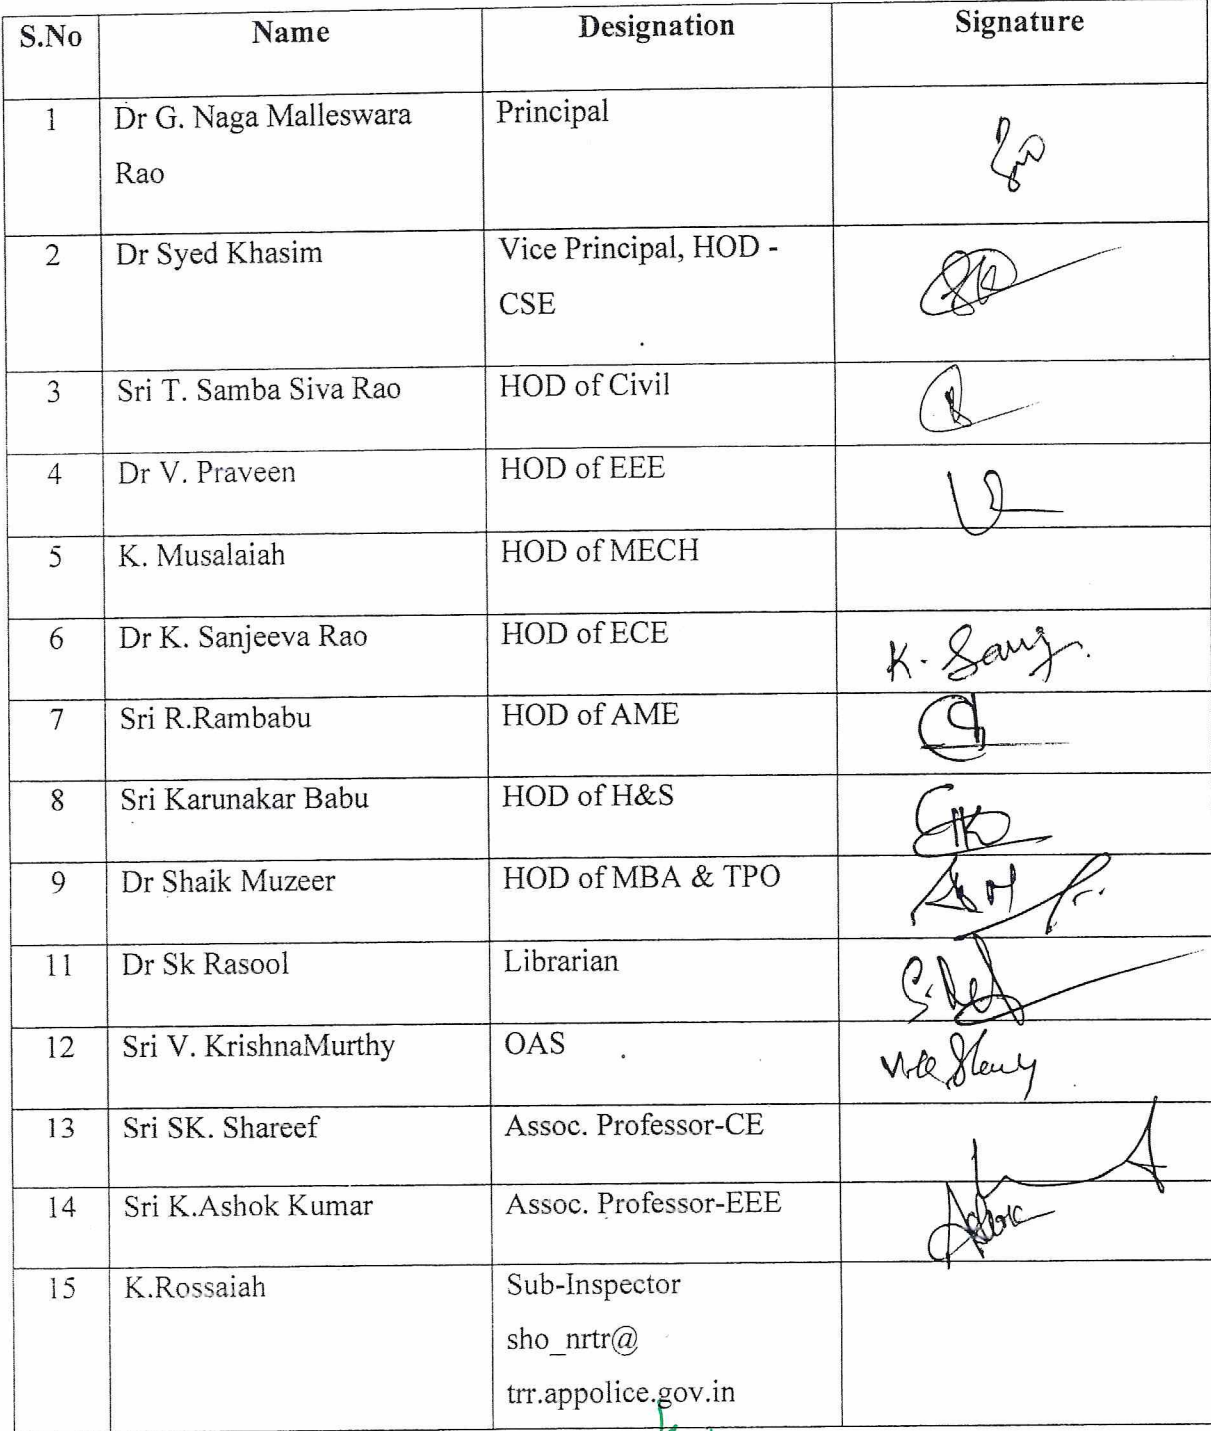 S.No Name Designation Signature
1 Dr G. Naga Malleswara Principal
Rao
2 Dr Syed Khasim Vice Principal, HOD -
CSE
3 Sri T. Samba Siva Rao HOD of Civil
4 Dr V. Praveen HOD of EEE
5 K. Musalaiah HOD of MECH
6 Dr K. Sanjeeva Rao HOD of ECE K. Sanj
7 Sri R.Rambabu HOD of AME
8 Sri Karunakar Babu HOD of H&S
9 Dr Shaik Muzeer HOD of MBA & TPO
11 Dr Sk Rasool Librarian
12 Sri V. KrishnaMurthy OAS
13 Sri SK. Shareef Assoc. Professor-CE
14 Sri K.Ashok Kumar Assoc. Professor-EEE
15 K.Rossaiah Sub-Inspector
sho_nrtr@
trr.appolice.gov.in